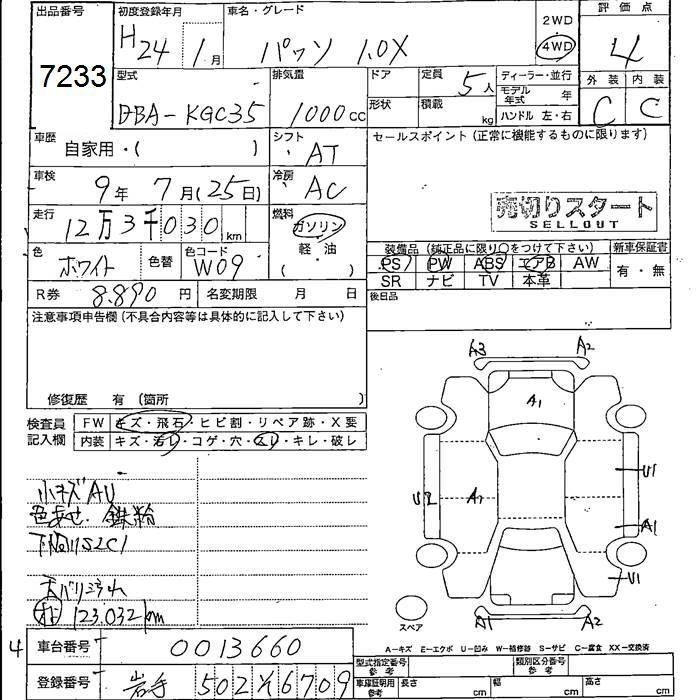 出品番号 初度登録年月 車名・グレード 2WD 評価点
7233 H24 1月 パッソ 1.0X 4WD 4
型式 排気量 ドア 定員 5人 ディーラー・並行 外装 内装
DBA-KGC35 1000cc 形状 積載 kg モデル年式 年 C C
ハンドル 左・右
車歴 自家用・( ) シフト AT セールスポイント(正常に機能するものに限ります)
車検 9年 7月(25日) 冷房 AC
売切りスタート
SELLOUT
走行 12万3千030km 燃料 ガソリン 軽・油 ( )
色 ホワイト 色替 色コード W09
装備品(純正品に限り○をつけて下さい) 新車保証書
PS PW ABS エアB AW 有・無
SR ナビ TV 本革
R券 8.890円 名変期限 月 日 後日品
注意事項申告欄(不具合内容等は具体的に記入して下さい)
修復歴 有(箇所 )
検査員記入欄 FW キズ・飛石・ヒビ割・リペア跡・X要
内装 キズ・汚レ・コゲ・穴・スレ・キレ・破レ
A3 A2
A1
U1
A1
U1
A1 A2
小キズAU
色あせ.鉄粉
123.032km
スペア
A-キズ E-エクボ U-凹み W-補修跡 S-サビ C-腐食 XX-交換済
4 車台番号 0013660
登録番号 岩手 502 そ 6709
型式指定番号 参考 類別区分番号 参考
車庫証明用 参考 長さ cm 幅 cm 高さ cm